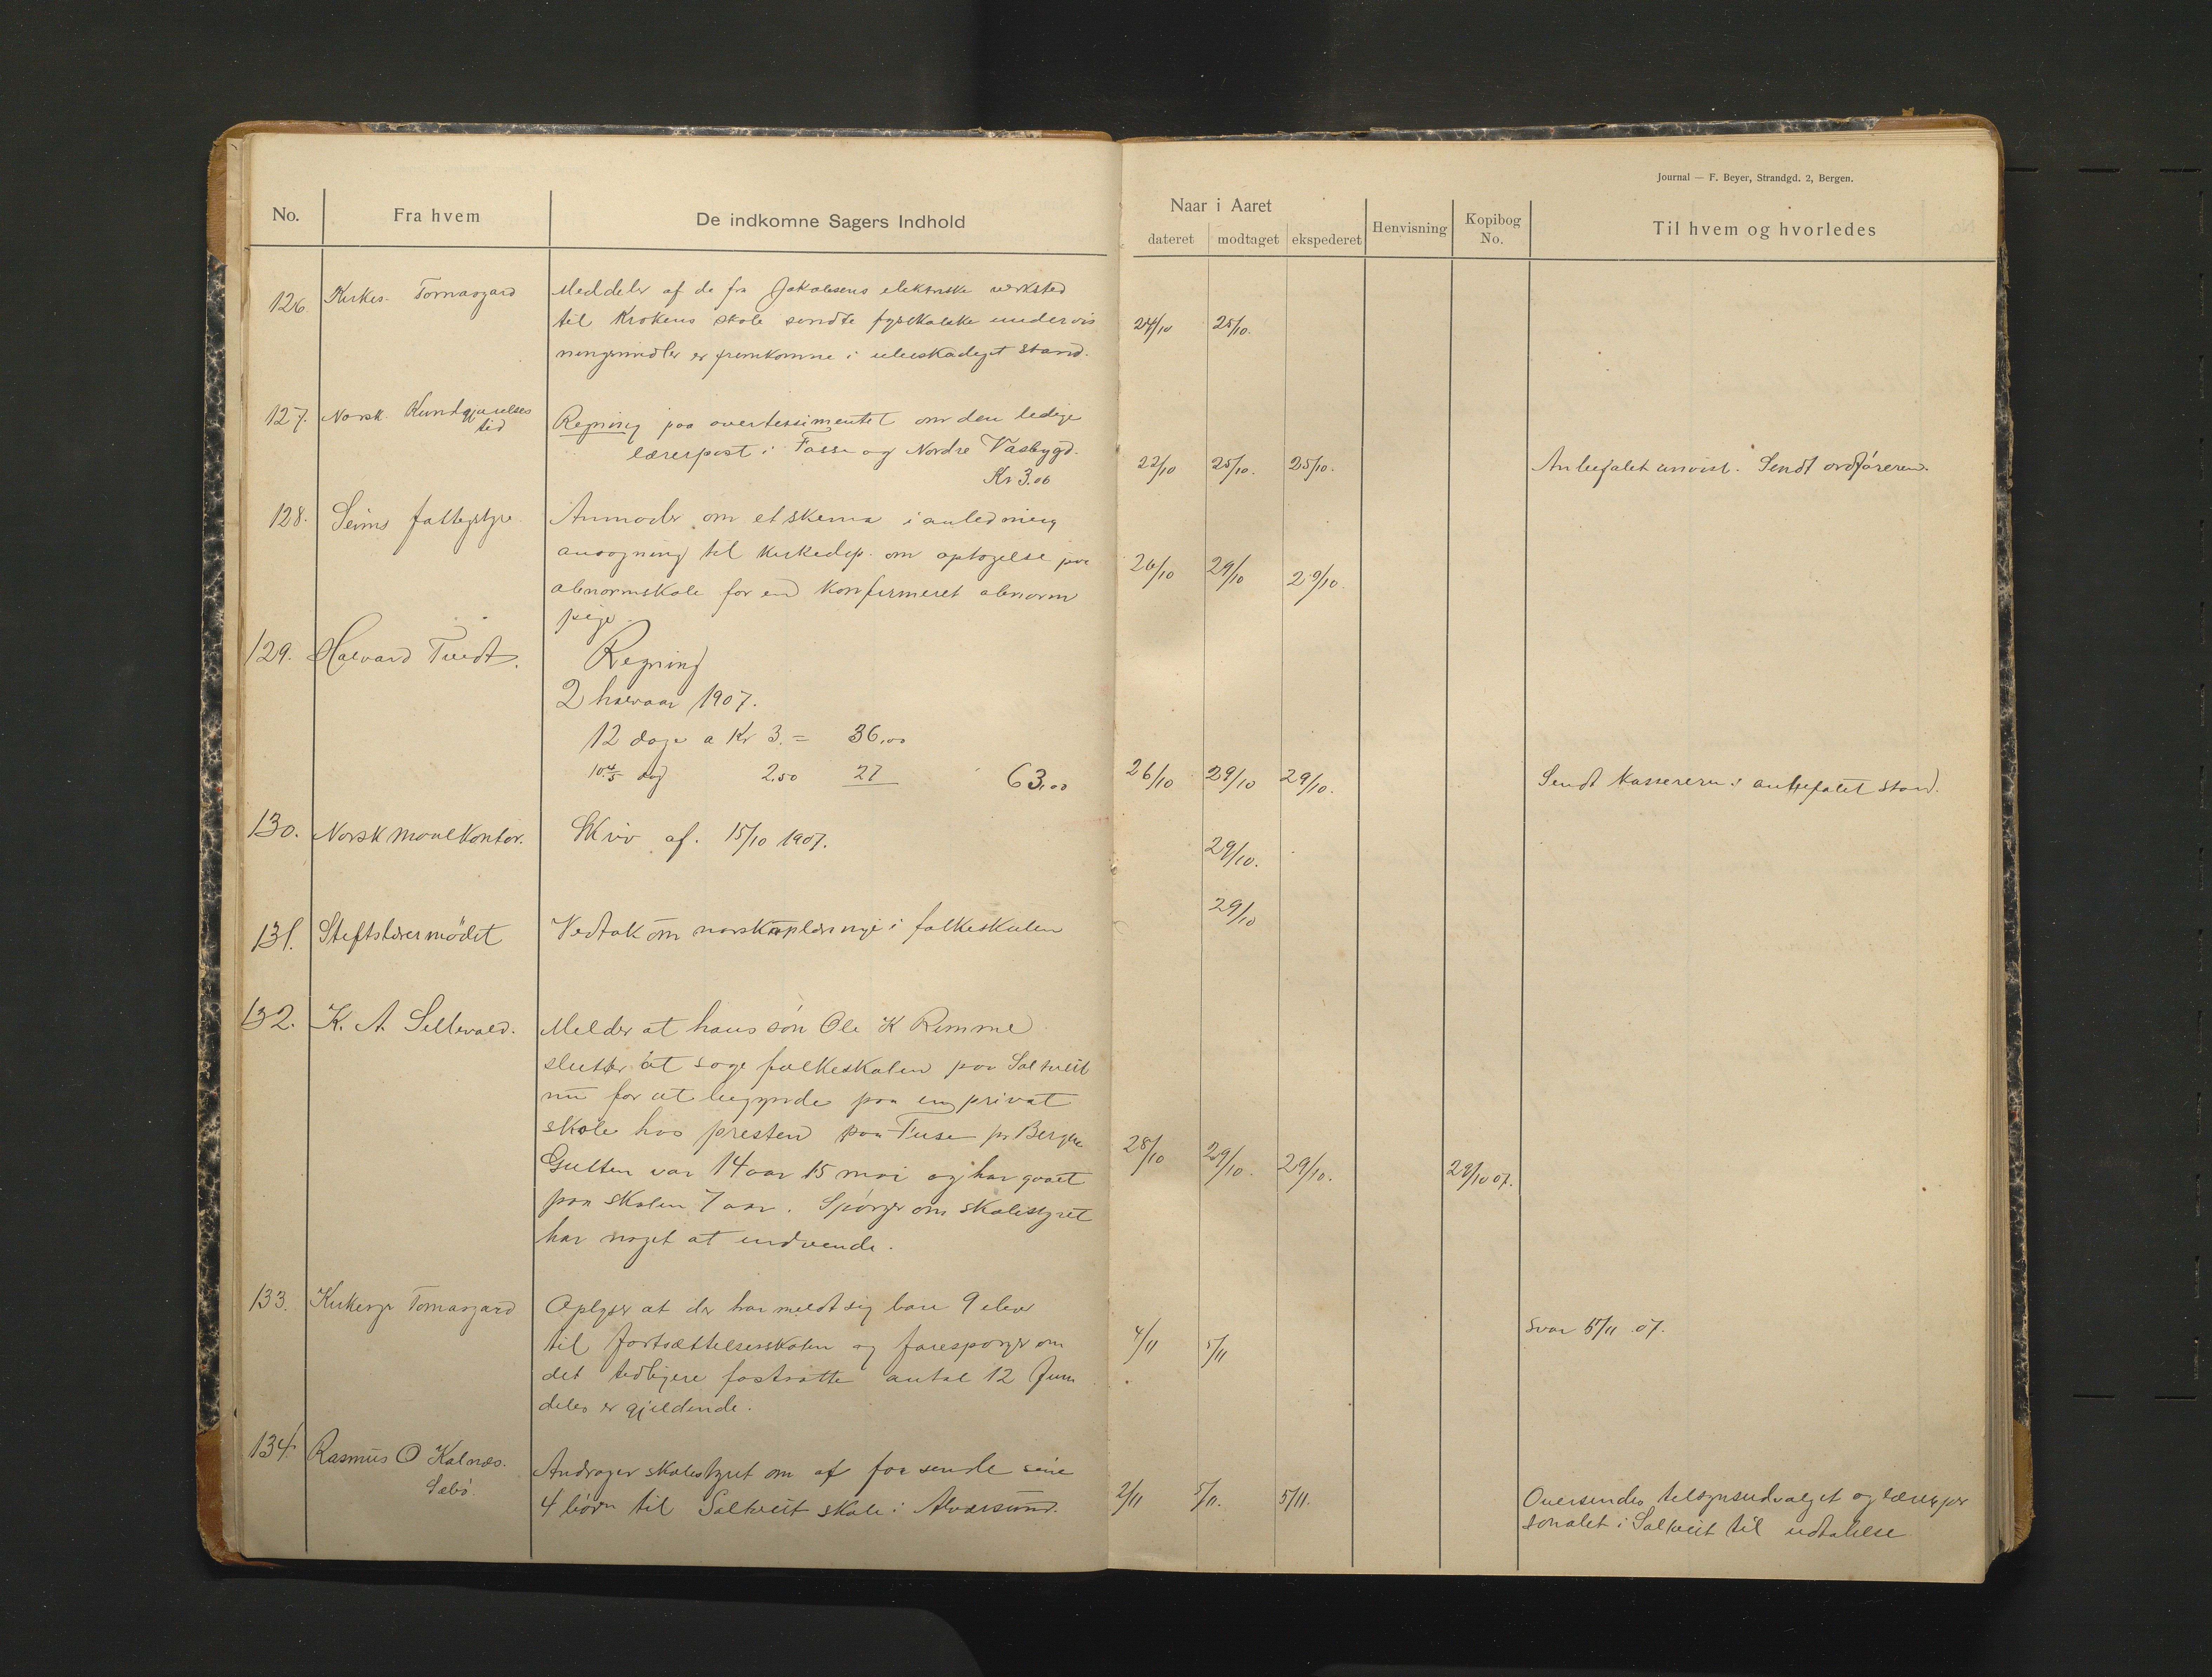 Journal — F. Beyer, Strandgd. 2, Bergen.
No. Fra hvem De indkomne Sagers Indhold Naar i Aaret dateret modtaget ekspederet Henvisning Kopibog No. Til hvem og hvorledes
126. Kirkes. Tomasgard Meddeler af de fra Jakobsens elektriske verksted
til Krokens skole sendte fysikalske undervis 24/10 25/10.
ningsmidler er fremkomne i ubeskadiget stand.
127. Norsk Kundgjørelses
tid Regning paa avertissimentet om den ledige
lærerpost i Fosse og Nordre Vasbygd. 23/10 25/10. 25/10. Anbefalet anvist. Sendt ordføreren.
Kr 3.06
128. Seims fattigstyre Anmoder om et skema i anledning
ansøgning til Kirkedep. om optagelse paa 26/10 29/10 29/10.
abnormskole for en konfirmeret abnorm
pige.
129. Halvard Tvedt. Regning
2 halvaar 1907.
12 dage a Kr 3. = 36,00
10 4/5 dag 2,50 27 63,00 26/10 29/10 29/10. Sendt kassereren i anbefalet stand.
130. Norsk Maalkontor. Skriv af. 15/10 1907. 29/10.
131. Stiftslærermødet Vedtak om norskoplæringe i folkeskulen 29/10
132. K. A. Sellevold. Melder at hans søn Ole K Rimme
slutter at søge folkeskolen paa Saltveit
nu for at begynde paa en privat
skole hos presten paa Fuse pr Bergen 28/10 29/10. 29/10. 29/10 07.
Gutten var 14 aar 15 mai og har gaaet
paa skolen 7 aar. Spørger om skolestyret
har noget at indvende.
133. Kirkesgr Tomasgard Oplyser at der har meldt sig bare 9 elev
til fortsættelsesskolen og forespørger om 4/11 5/11 Svar 5/11 07.
det tidligere fastsatte antal 12 frem
deles er gjeldende.
134. Rasmus O Kalnæs.
Sæbø. Andrager skolestyret om at faa sende sine
4 børn til Saltveit skole i Alversund. 2/11 5/11. 5/11. Oversendes tilsynsudvalget og lærerper
sonalet i Saltveit til udtalelse